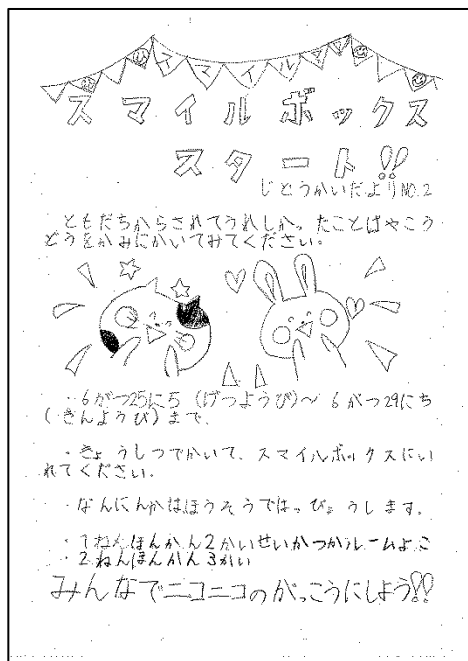 スマイルボックス
スタート!!
じどうかいだよりNO.2
ともだちからされてうれしかったことばやこう
どうをかみにかいてみてください。
・6がつ25にち(げつようび)〜6がつ29にち
(きんようび)まで
・きょうしつでかいて、スマイルボックスにい
れてください。
・なんにんかはほうそうではっぴょうします。
・1ねんほんかん2かいせいかつかルームよこ
・2ねんほんかん3かい
みんなでニコニコのがっこうにしよう!!